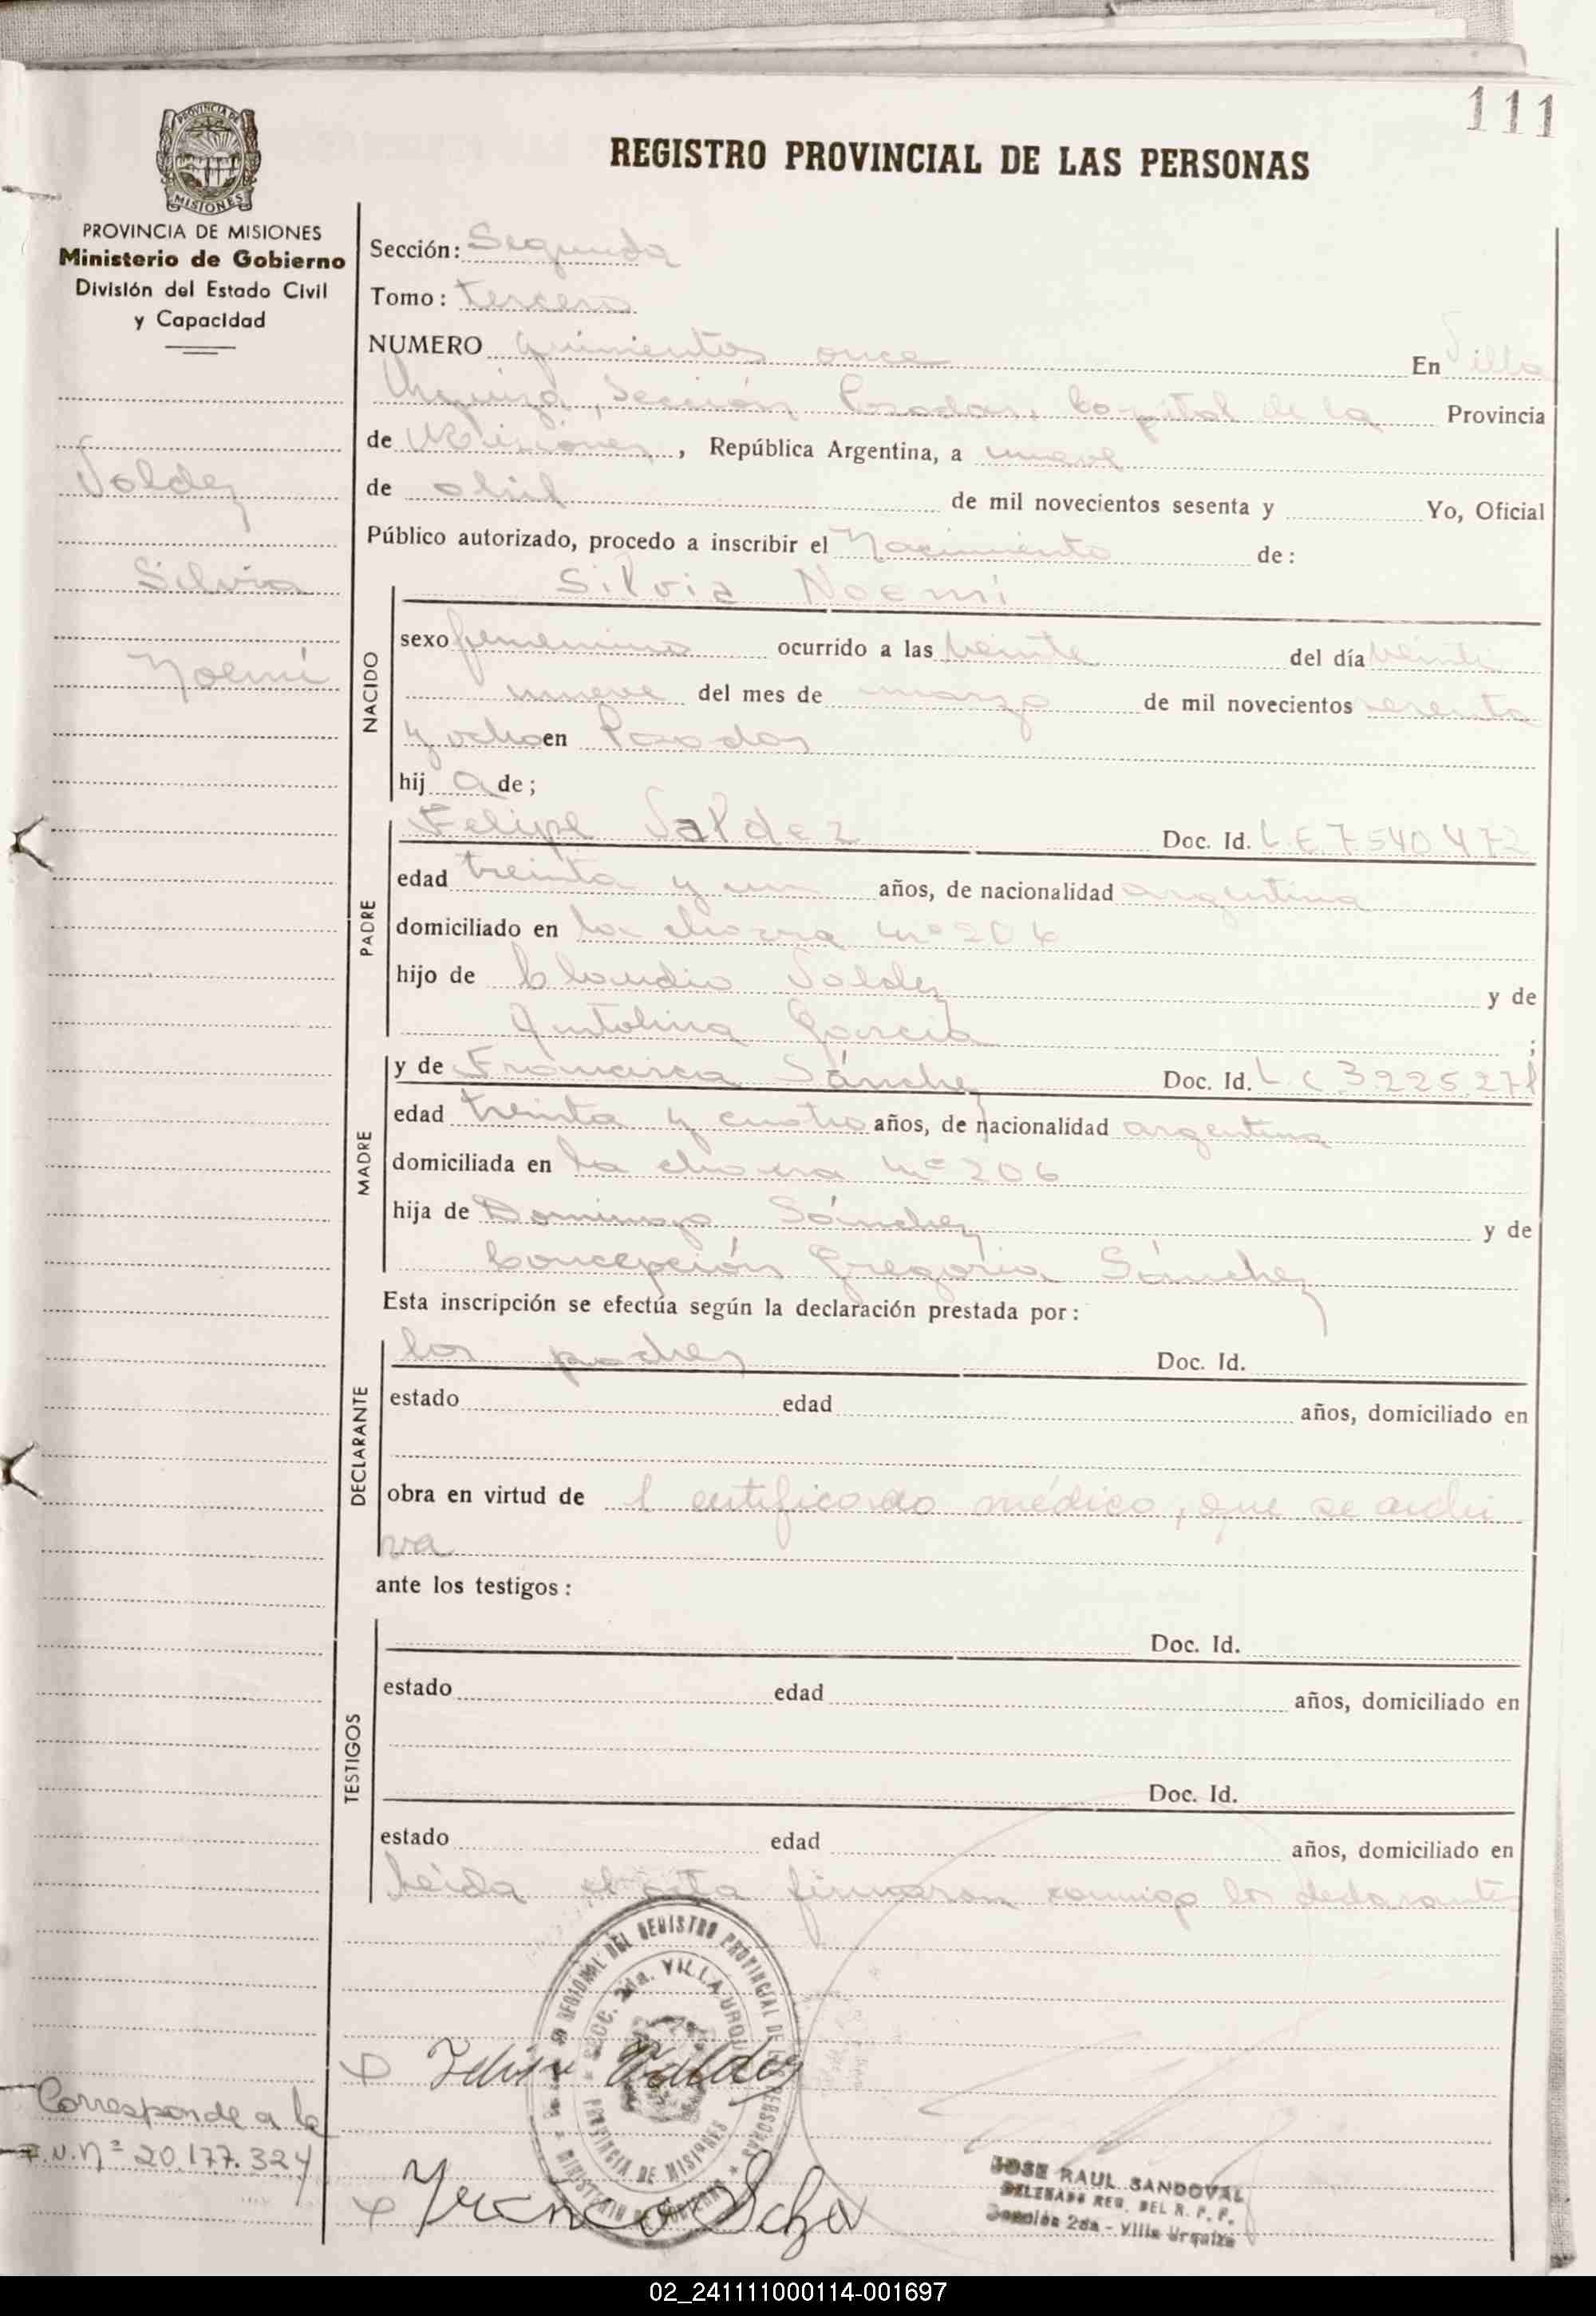 111
REGISTRO PROVINCIAL DE LAS PERSONAS
PROVINCIA DE MISIONES
PROVINCIA DE MISIONES
Ministerio de Gobierno
División del Estado Civil
y Capacidad
Valdez
Silvia
Noemí
Corresponde a la
20.177.324
Sección: Segunda
Tomo: tercero
NUMERO quinientos once En Villa
Urquiza, Sección Posadas, Capital de la Provincia
de Misiones, República Argentina, a nueve
de abril de mil novecientos sesenta y Yo, Oficial
Público autorizado, procedo a inscribir el Nacimiento de:
NACIDO
Silvia Noemí
sexo femenino ocurrido a las veinte del día veinti
nueve del mes de marzo de mil novecientos sesenta
y ocho en Posadas
hij a de;
PADRE
Felipe Valdez Doc. Id. L.E 7540472
edad treinta y un años, de nacionalidad argentina
domiciliado en la chacra nº 206
hijo de Claudio Valdez y de
García;
MADRE
y de Francisca Sánchez Doc. Id. L.C 3.225.271
edad treinta y cuatro años, de nacionalidad argentina
domiciliada en la chacra nº 206
hija de Domingo Sánchez y de
Concepción Gregoria Sánchez
Esta inscripción se efectúa según la declaración prestada por:
DECLARANTE
los padres Doc. Id.
estado edad años, domiciliado en
obra en virtud de 1 certificado médico, que se archi
va
ante los testigos:
TESTIGOS
Doc. Id.
estado edad años, domiciliado en
Doc. Id.
estado edad años, domiciliado en
Leída el acta firmaron conmigo los declarantes
REGIONAL DEL REGISTRO PROVINCIAL DE LAS PERSONAS
SECC. 2da. VILLA URQUIZA
PROVINCIA DE MISIONES
MINISTERIO DE GOBIERNO
Felipe Valdez
JOSE RAUL SANDOVAL
DELEGADO REG. DEL R. P. P.
Sección 2da - Villa Urquiza
02_241111000114-001697